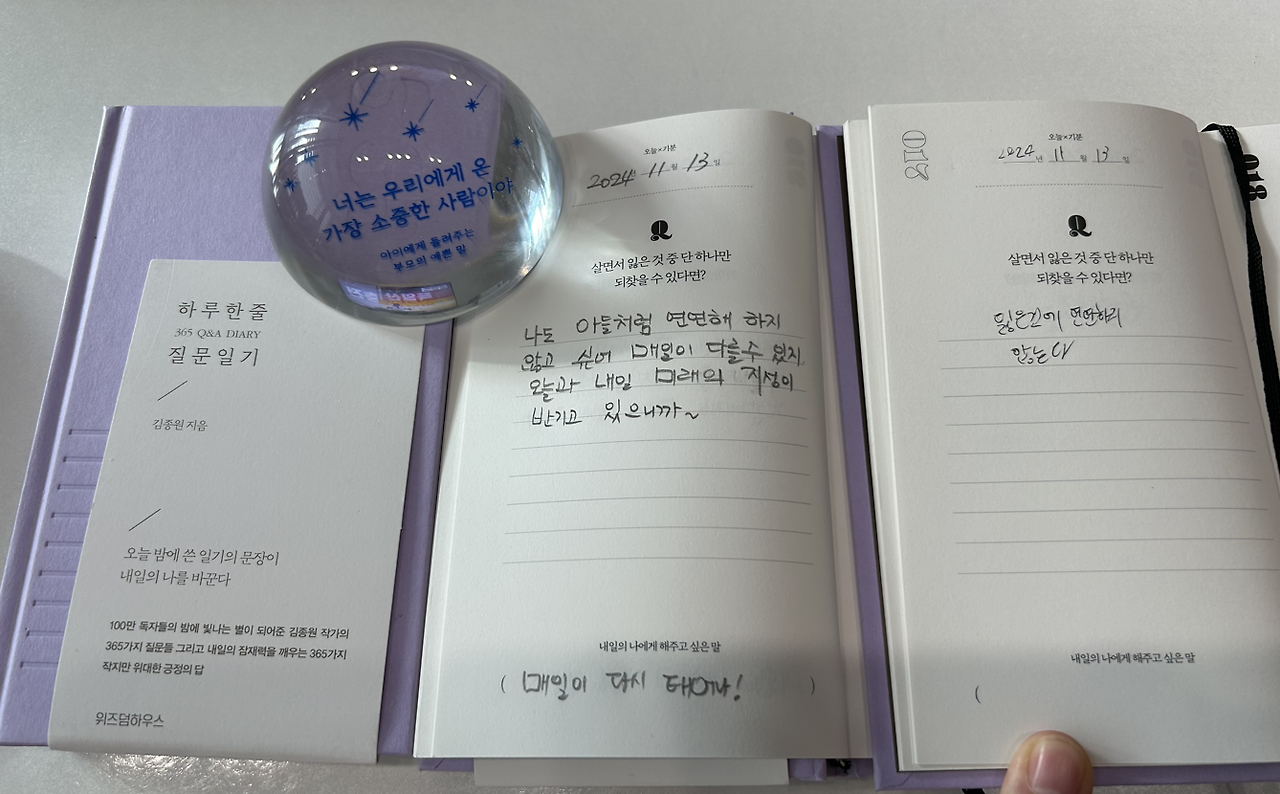 너는 우리에게 온
가장 소중한 사람이야
아이에게 들려주는
부모의 예쁜 말
하루 한 줄
365 Q&A DIARY
질문 일기
김종원 지음
오늘 밤에 쓴 일기의 문장이
내일의 나를 바꾼다
100만 독자들의 밤에 빛나는 별이 되어준 김종원 작가의
365가지 질문들 그리고 내일의 잠재력을 깨우는 365가지
작지만 위대한 긍정의 답
위즈덤하우스
오늘×기분
2024년 11월 13일
Q
살면서 잃은 것 중 단 하나만
되찾을 수 있다면?
나도 아들처럼 연연해 하지
않고 싶어 매일이 다를 수 없지
오늘과 내일 미래의 지성이
반기고 있으니까~
내일의 나에게 해주고 싶은 말
( 매일이 다시 태어나! )
018
오늘×기분
2024년 11월 13일
Q
살면서 잃은 것 중 단 하나만
되찾을 수 있다면?
잃은것에 연연하지
않는다
내일의 나에게 해주고 싶은 말
(
018